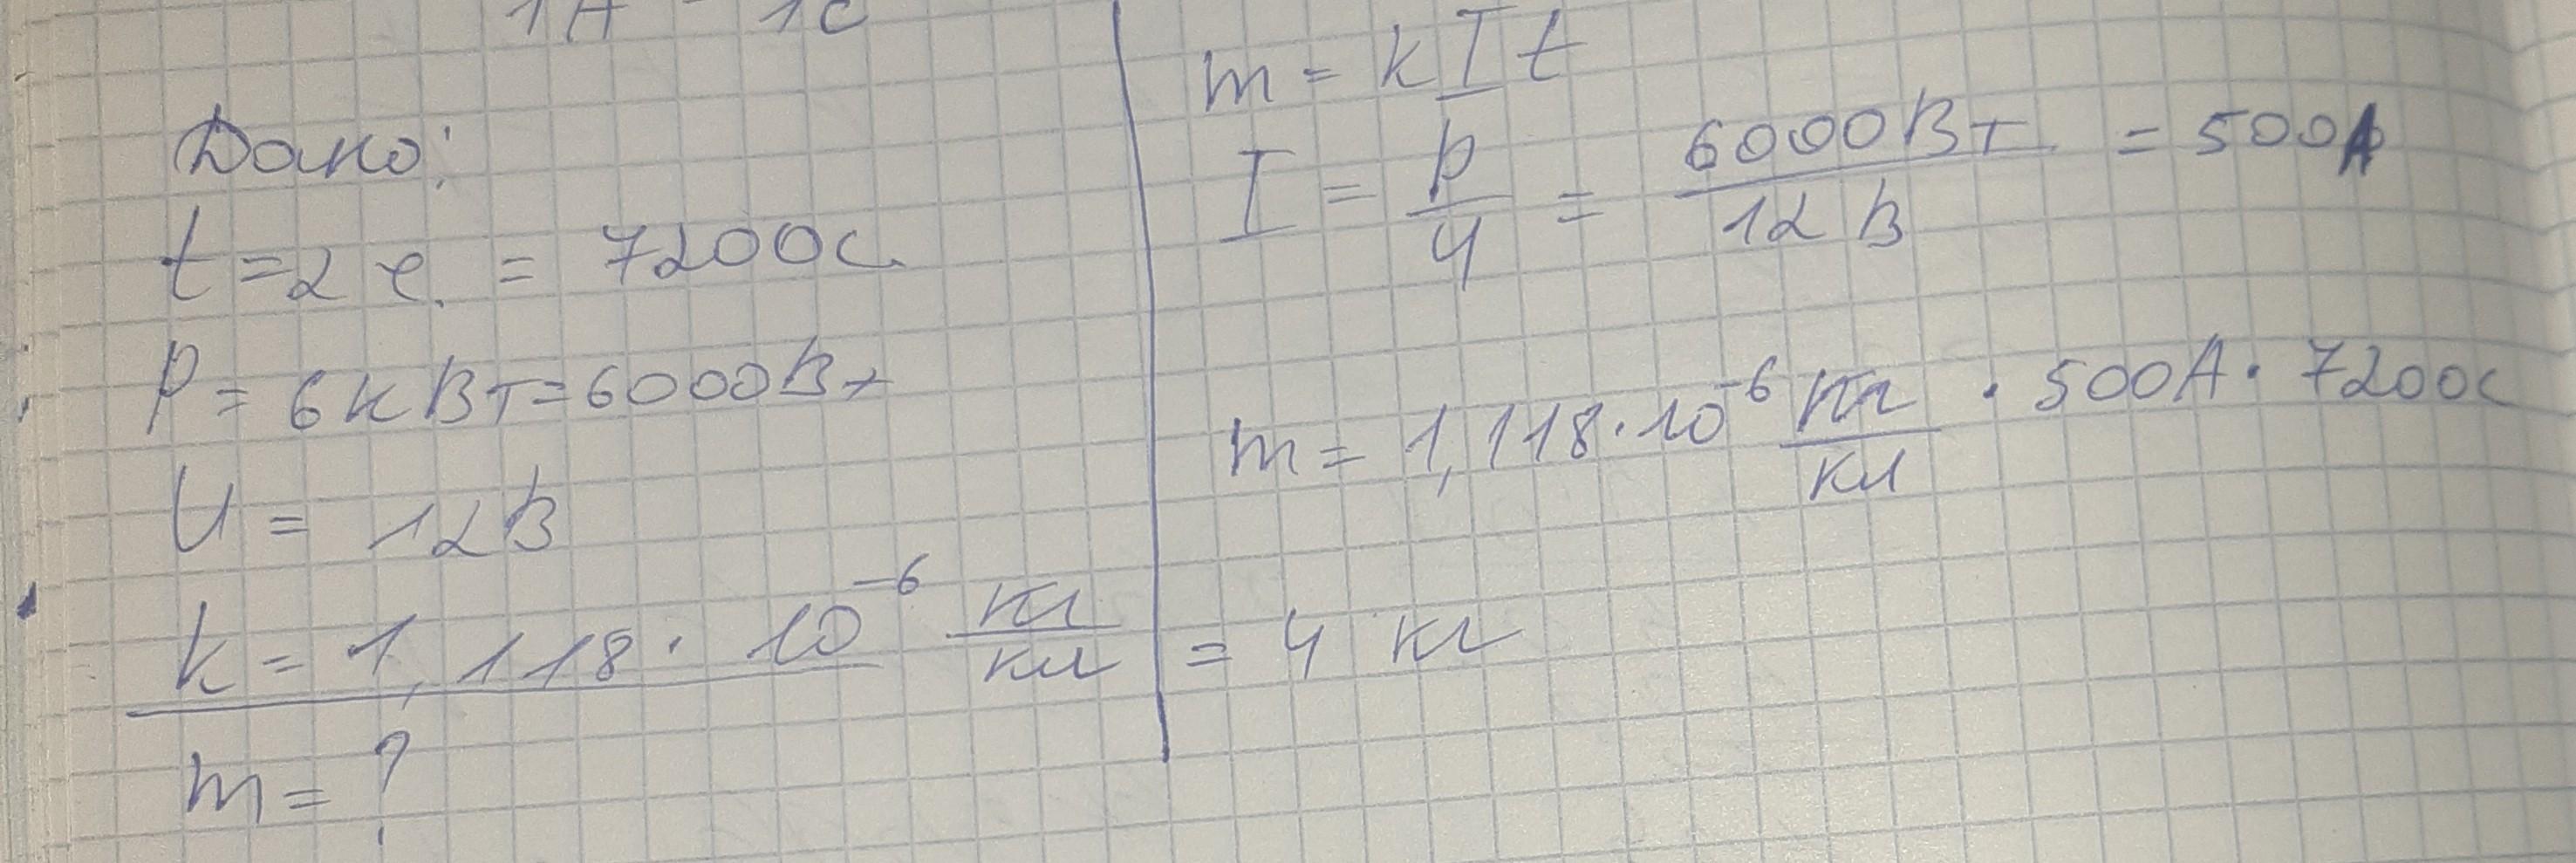 1A - 1c
Дано:
t = 2 г. = 7200с
P = 6кВт = 6000Вт
U = 12В
k = 1,118 · 10⁻⁶ кг/кл
m = ?
m = k I t
I = P/U = 6000Вт/12В = 500А
m = 1,118 · 10⁻⁶ кг/кл · 500А · 7200с
= 4 кг